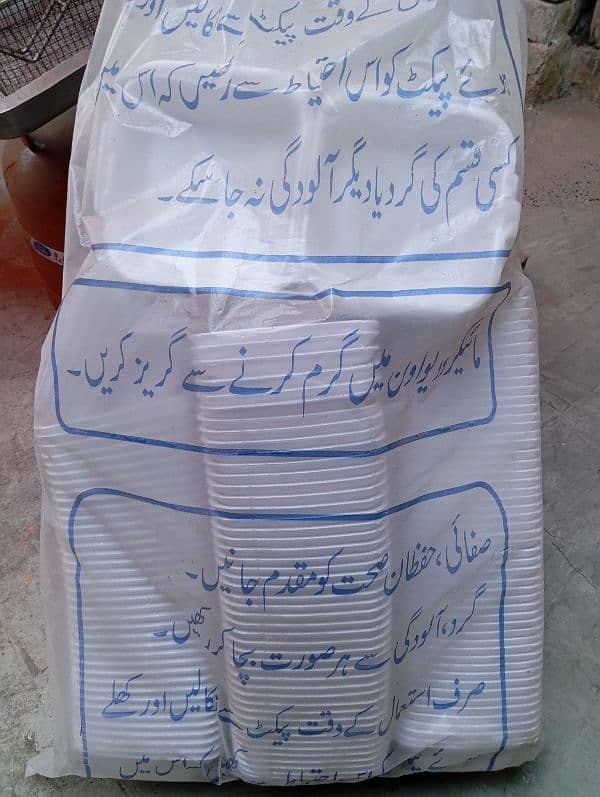 کے وقت پیکٹ سے نکالیں اور
ہوئے پیکٹ کو اس احتیاط سے رکھیں کہ اس میں
کسی قسم کی گرد یا دیگر آلودگی نہ جا سکے۔
مائیکرو ویو اون میں گرم کرنے سے گریز کریں۔
صفائی، حفظان صحت کو مقدم جانیں۔
گرد، آلودگی سے ہر صورت بچا کر رکھیں۔
صرف استعمال کے وقت پیکٹ سے نکالیں اور کھلے
ہوئے پیکٹ کو اس احتیاط سے رکھیں کہ اس میں